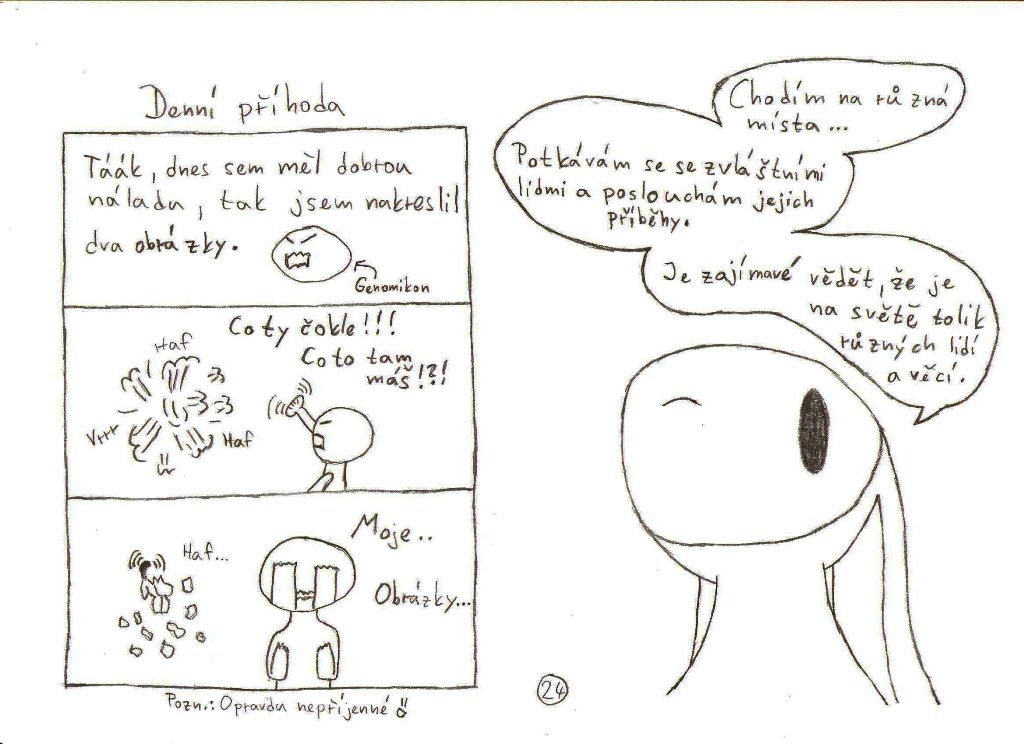 Denní příhoda
Táák, dnes sem měl dobrou
náladu, tak jsem nakreslil
dva obrázky.
Génomikon
Co ty čokle!!!
Co to tam
máš!?!
Haf
Vrrr
Haf
Moje..
Haf...
Obrázky...
Pozn.: Opravdu nepříjenné
Chodím na různá
místa...
Potkávám se se zvláštními
lidmi a poslouchám jejich
příběhy.
Je zajímavé vědět, že je
na světě tolik
různých lidí
a věcí.
24